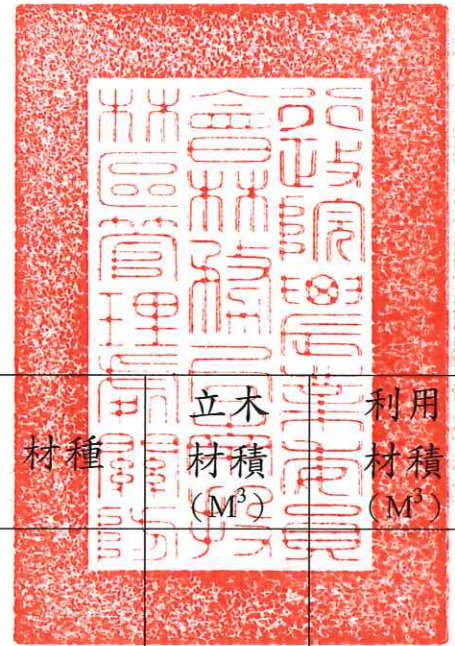 行政院農業委員
會林務局南投
林區管理處關防
材種
立木
材積
(M³)
利用
材積
(M³)